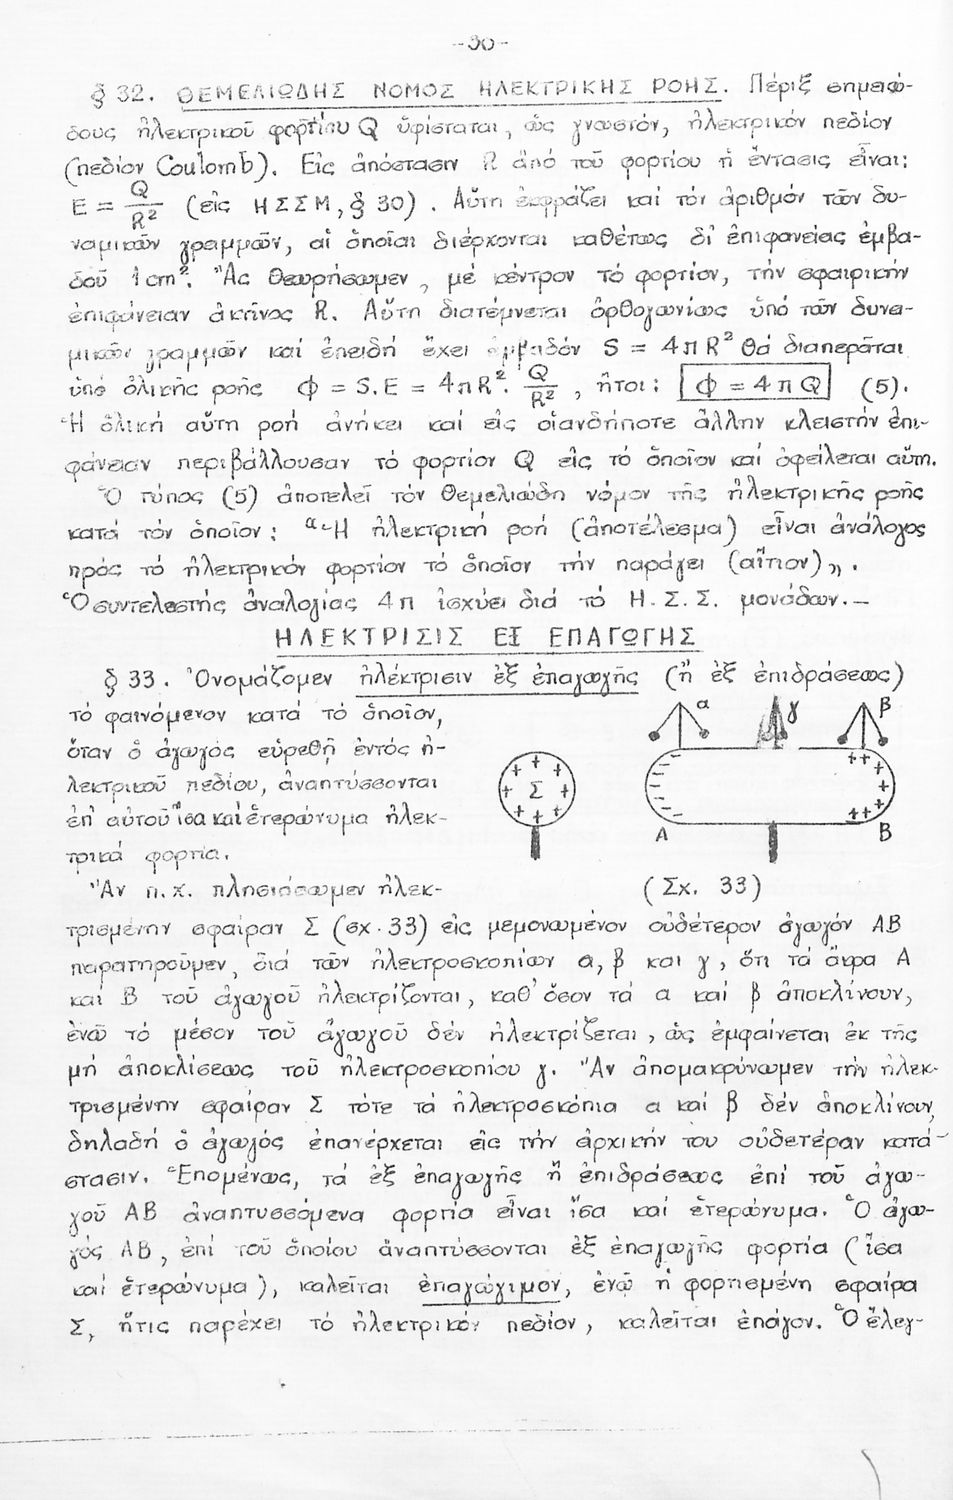 -30-
§ 32. ΘΕΜΕΛΙΩΔΗΣ ΝΟΜΟΣ ΗΛΕΚΤΡΙΚΗΣ ΡΟΗΣ. Πέριξ σημειώ-
δους ἠλεκτρικοῦ φορτίου Q ὑφίσταται, ὡς γνωστόν, ἠλεκτρικόν πεδίον
(πεδίον Coulomb). Εἰς ἀπόστασιν R ἀπό τοῦ φορτίου ἡ ἔντασις εἶναι:
E = Q/R² (εἰς ΗΣΣΜ, § 30). Αὕτη ἐκφράζει καί τόν ἀριθμόν τῶν δυ-
ναμικῶν γραμμῶν, αἱ ὁποῖαι διέρχονται καθέτως δι' ἐπιφανείας ἐμβα-
δοῦ 1 cm². Ἄς θεωρήσωμεν, μέ κέντρον τό φορτίον, τήν σφαιρικήν
ἐπιφάνειαν ἀκτῖνος R. Αὕτη διατέμνεται ὀρθογωνίως ὑπό τῶν δυνα-
μικῶν γραμμῶν καί ἐπειδή ἔχει ἐμβαδόν S = 4πR² θά διαπερᾶται
ὑπό ὁλικῆς ροῆς Φ = S.E = 4πR². Q/R², ἤτοι: Φ = 4πQ (5).
Ἡ ὁλική αὕτη ροή ἀνήκει καί εἰς οἱανδήποτε ἄλλην κλειστήν ἐπι-
φάνειαν περιβάλλουσαν τό φορτίον Q εἰς τό ὁποῖον καί ὀφείλεται αὕτη.
Ὁ τύπος (5) ἀποτελεῖ τόν θεμελιώδη νόμον τῆς ἠλεκτρικῆς ροῆς
κατά τόν ὁποῖον: "Ἡ ἠλεκτρική ροή (ἀποτέλεσμα) εἶναι ἀνάλογος
πρός τό ἠλεκτρικόν φορτίον τό ὁποῖον τήν παράγει (αἴτιον)„.
Ὁ συντελεστής ἀναλογίας 4π ἰσχύει διά τό Η.Σ.Σ. μονάδων.—
ΗΛΕΚΤΡΙΣΙΣ ΕΞ ΕΠΑΓΩΓΗΣ
§ 33. Ὀνομάζομεν ἠλέκτρισιν ἐξ ἐπαγωγῆς (ἤ ἐξ ἐπιδράσεως)
τό φαινόμενον κατά τό ὁποῖον,
ὅταν ὁ ἀγωγός εὑρεθῇ ἐντός ἠ-
λεκτρικοῦ πεδίου, ἀναπτύσσονται
ἐπ' αὐτοῦ ἴσα καί ἑτερώνυμα ἠλεκ-
τρικά φορτία.
α γ β
+ + + + + + + +
Σ
- - - - - -
++ + + + ++
A B
(Σχ. 33)
Ἄν π.χ. πλησιάσωμεν ἠλεκ-
τρισμένην σφαῖραν Σ (σχ. 33) εἰς μεμονωμένον οὐδέτερον ἀγωγόν ΑΒ
παρατηροῦμεν, διά τῶν ἠλεκτροσκοπίων α, β καί γ, ὅτι τά ἄκρα Α
καί Β τοῦ ἀγωγοῦ ἠλεκτρίζονται, καθ' ὅσον τά α καί β ἀποκλίνουν,
ἐνῶ τό μέσον τοῦ ἀγωγοῦ δέν ἠλεκτρίζεται, ὡς ἐμφαίνεται ἐκ τῆς
μή ἀποκλίσεως τοῦ ἠλεκτροσκοπίου γ. Ἄν ἀπομακρύνωμεν τήν ἠλεκ-
τρισμένην σφαῖραν Σ τότε τά ἠλεκτροσκόπια α καί β δέν ἀποκλίνουν,
δηλαδή ὁ ἀγωγός ἐπανέρχεται εἰς τήν ἀρχικήν του οὐδετέραν κατά-
στασιν. Ἑπομένως, τά ἐξ ἐπαγωγῆς ἤ ἐπιδράσεως ἐπί τοῦ ἀγω-
γοῦ ΑΒ ἀναπτυσσόμενα φορτία εἶναι ἴσα καί ἑτερώνυμα. Ὁ ἀγω-
γός ΑΒ, ἐπί τοῦ ὁποίου ἀναπτύσσονται ἐξ ἐπαγωγῆς φορτία (ἴσα
καί ἑτερώνυμα), καλεῖται ἐπαγώγιμον, ἐνῶ ἡ φορτισμένη σφαῖρα
Σ, ἥτις παρέχει τό ἠλεκτρικόν πεδίον, καλεῖται ἐπάγον. Ὁ ἔλεγ-